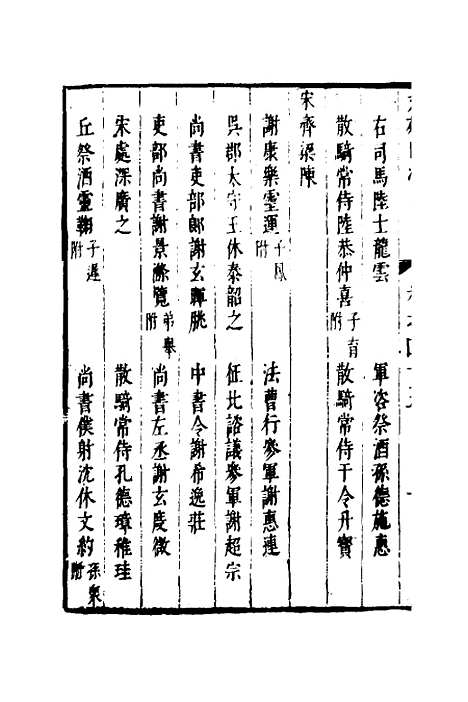 右司馬陸士龍雲　軍咨祭酒孫德施惠
散騎常侍陸恭仲喜子育附　散騎常侍干令升寶
宋齊梁陳
謝康樂靈運子鳳附　法曹行參軍謝惠連
吳郡太守王休泰韶之　征北諮議參軍謝超宗
尚書吏部郎謝玄暉朓　中書令謝希逸莊
吏部尚書謝景滌覽弟舉附　尚書左丞謝玄度徵
宋處深廣之　散騎常侍孔德璋稚珪
丘祭酒靈鞠子遲附　尚書僕射沈休文約孫衆附